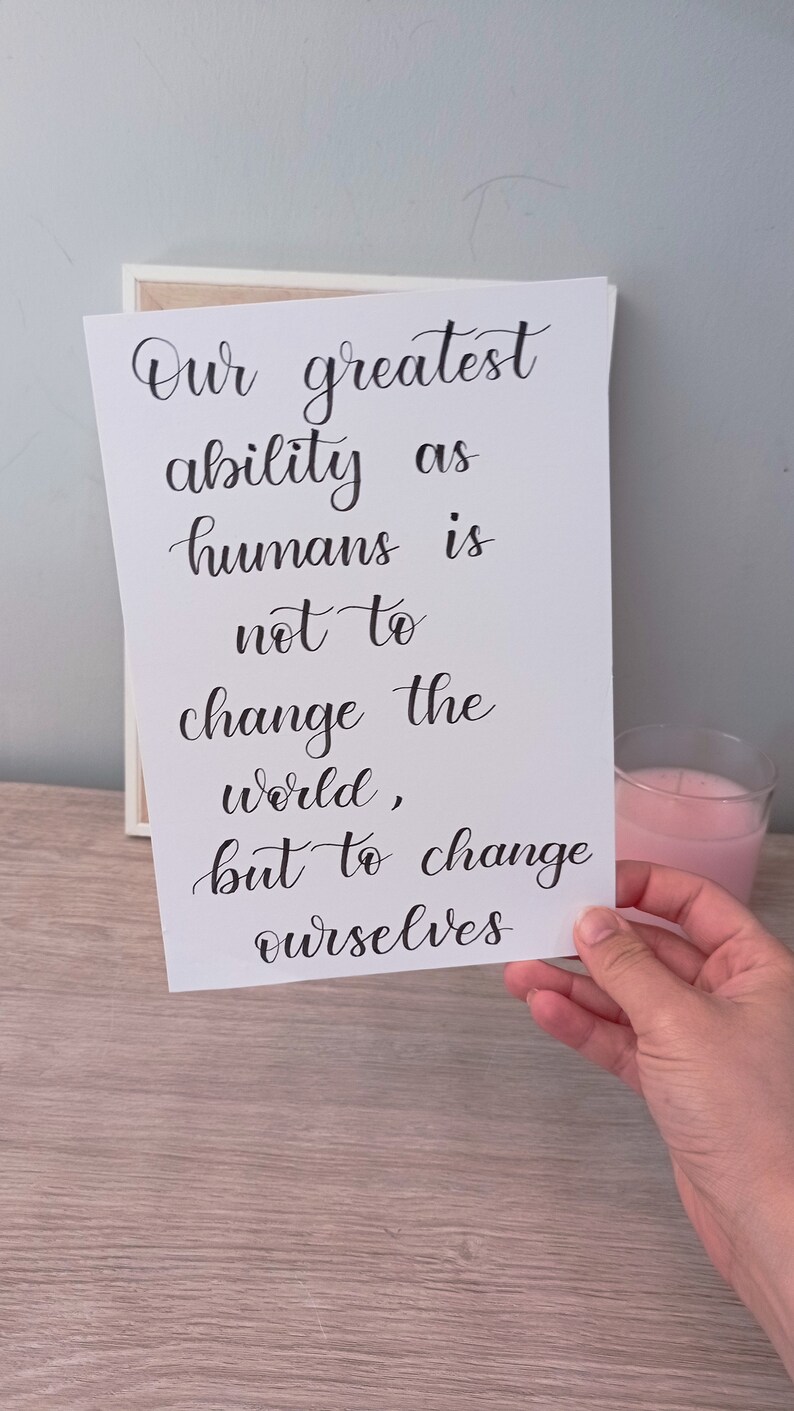 Our greatest
ability as
humans is
not to
change the
world,
but to change
ourselves